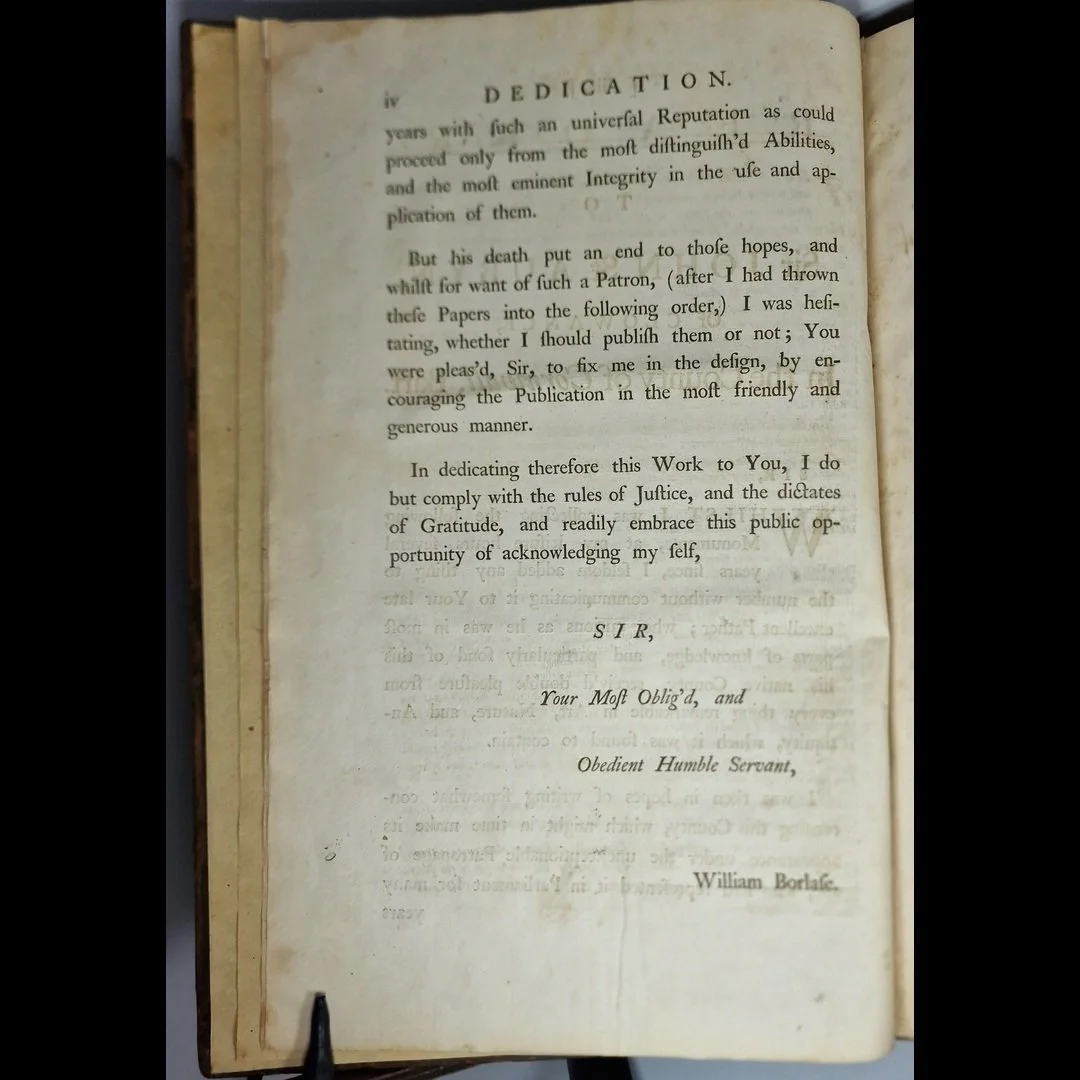 iv DEDICATION.
years with ſuch an univerſal Reputation as could
proceed only from the moſt diſtinguiſh'd Abilities,
and the moſt eminent Integrity in the uſe and ap-
plication of them.
But his death put an end to thoſe hopes, and
whilſt for want of ſuch a Patron, (after I had thrown
theſe Papers into the following order,) I was heſi-
tating, whether I ſhould publiſh them or not; You
were pleas'd, Sir, to fix me in the deſign, by en-
couraging the Publication in the moſt friendly and
generous manner.
In dedicating therefore this Work to You, I do
but comply with the rules of Juſtice, and the dictates
of Gratitude, and readily embrace this public op-
portunity of acknowledging my ſelf,
SIR,
Your Moſt Oblig'd, and
Obedient Humble Servant,
William Borlaſe.